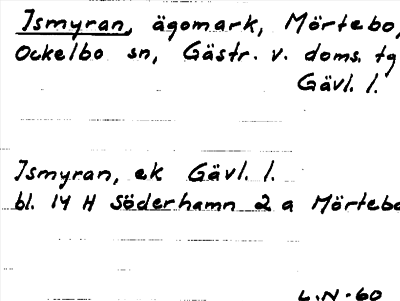 Ismyran, ägomark, Mörtebo,
Ockelbo sn, Gästr. v. doms. tg
Gävl. l.
Ismyran, ek Gävl. l.
bl. 14 H Söderhamn 2 a Mörtebo
L.N-60